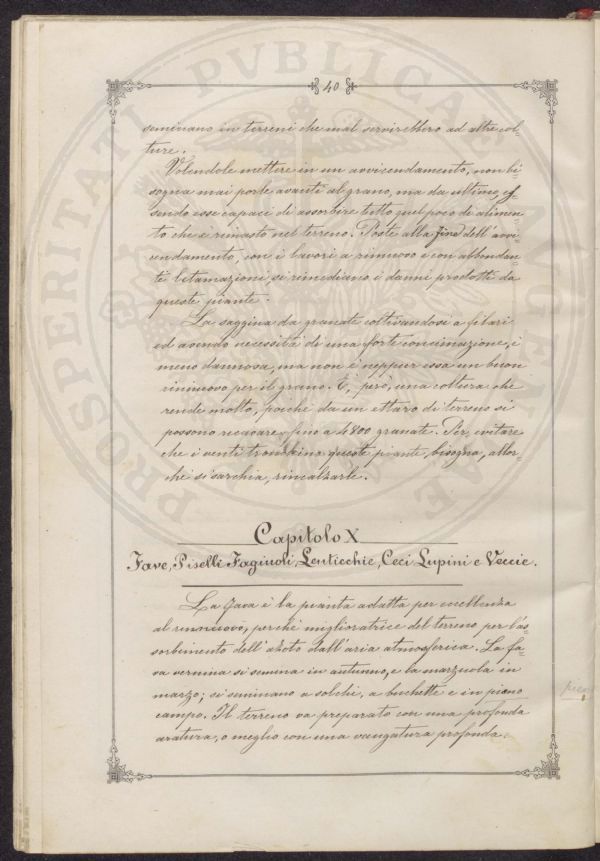 40
seminano in terreni che mal servirebbero ad altre col-
ture.
Volendole mettere in un avvicendamento, non bi
sogna mai porle avanti al grano, ma da ultimo, es-
sendo esse capaci di assorbire tutto quel poco di alimen-
to che è rimasto nel terreno. Poste alla fine dell'avvi-
cendamento, con i lavori a rinnovo e con abbondan-
te letamazioni, si rimediano i danni prodotti da
queste piante.
La saggina da granate coltivandosi a filari
ed avendo necessità di una forte concimazione, è
meno dannosa, ma non è neppur essa un buon
rinnuovo per il grano. È, però, una coltura che
rende molto, poiché da un ettaro di terreno si
possono ricavare fino a 4800 granate. Per evitare
che i venti tronchino queste piante, bisogna, allor-
ché si sarchia, rincalzarle.
Capitolo X
Fave, Piselli Fagiuoli, Lenticchie, Ceci Lupini e Veccie.
La fava è la pianta adatta per eccellenza
al rinnuovo, perché miglioratrice del terreno per l'as-
sorbimento dell'azoto dall'aria atmosferica. La fa-
va vernina si semina in autunno, e la marzuola in
marzo; si seminano a solchi, a buchette e in pieno
campo. Il terreno va preparato con una profonda
aratura, o meglio con una vangatura profonda.
PROSPERITATI PVBLICAE AVGENDAE